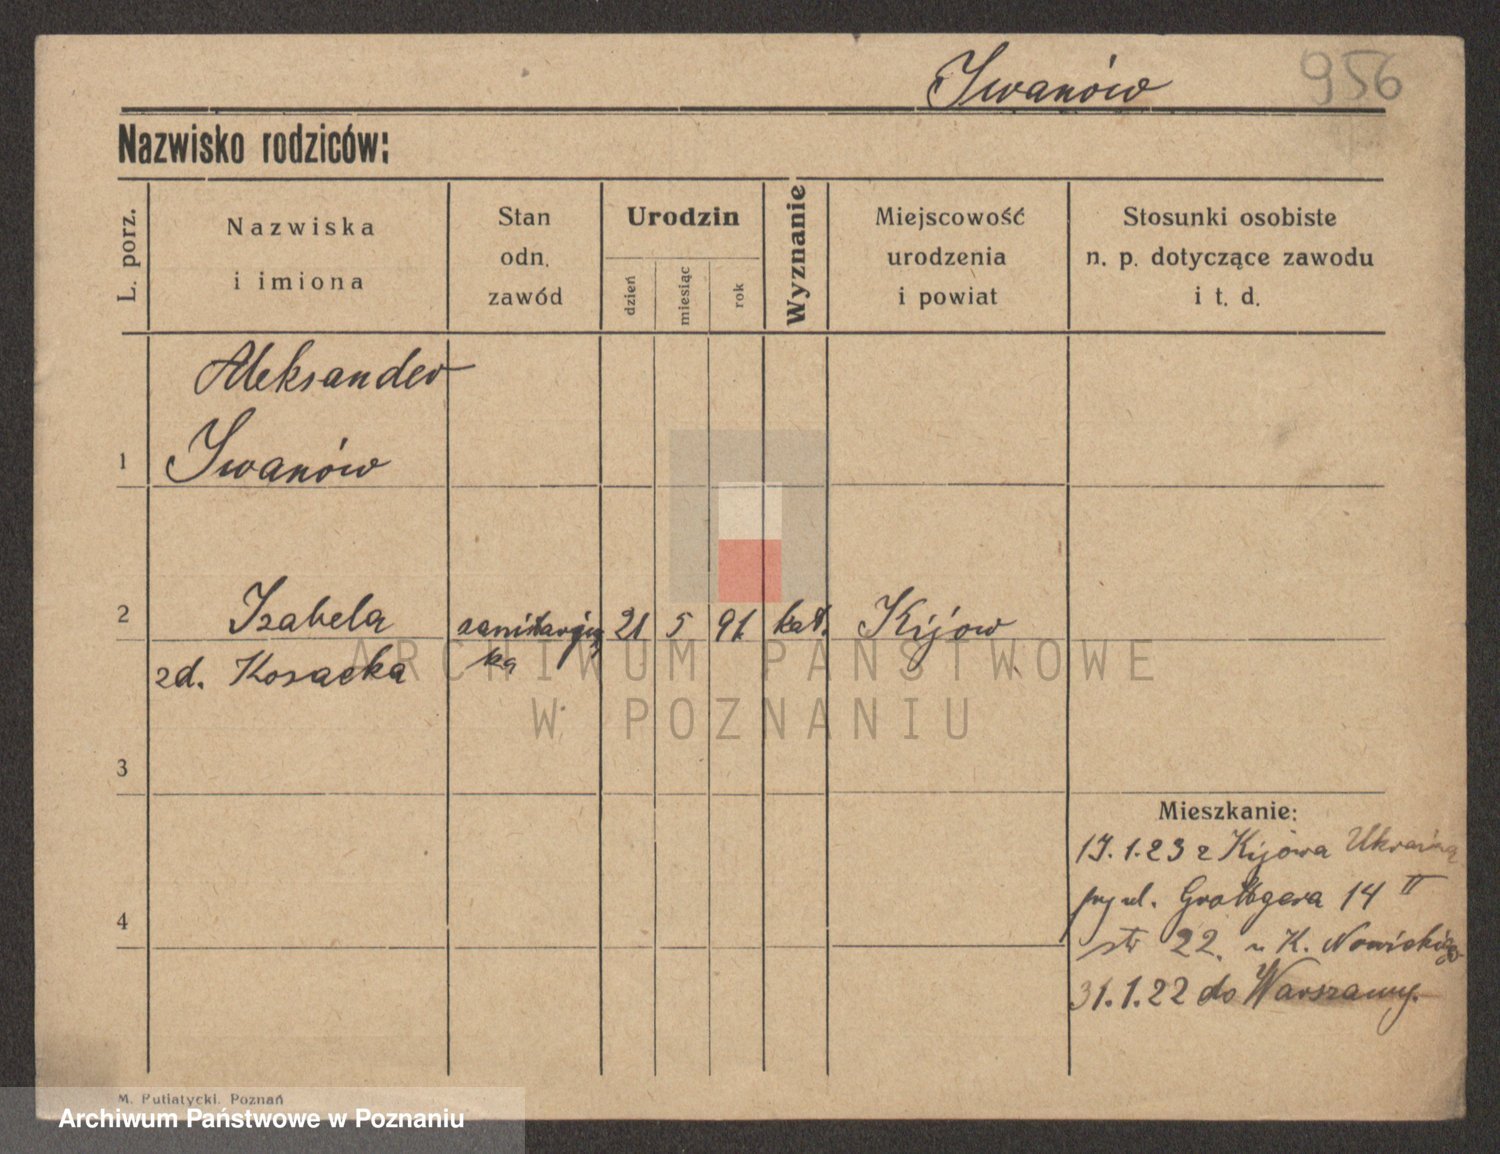 Iwanów
956
Nazwisko rodziców:
L. porz.
Nazwiska
i imiona
Stan
odn.
zawód
Urodzin
dzień
miesiąc
rok
Wyznanie
Miejscowość
urodzenia
i powiat
Stosunki osobiste
n. p. dotyczące zawodu
i t. d.
Aleksander
1 Iwanów
2 Izabela sanitarjusz 21 5 91 kat. Kijow
zd. Kosacka ka
ARCHIWUM PAŃSTWOWE
W POZNANIU
3
Mieszkanie:
17.1.23 z Kijowa Ukraina
przy ul. Grottgera 14 II
4
str 22. u K. Nowickiego
31.1.22 do Warszawy.
M. Putiatycki. Poznań
Archiwum Państwowe w Poznaniu